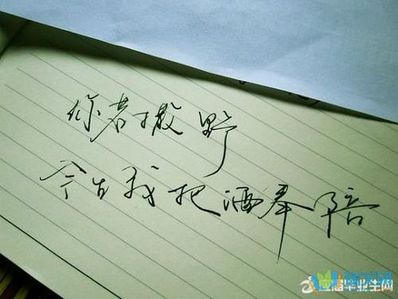 你若撒野
今生我把酒奉陪
@应届毕业生网